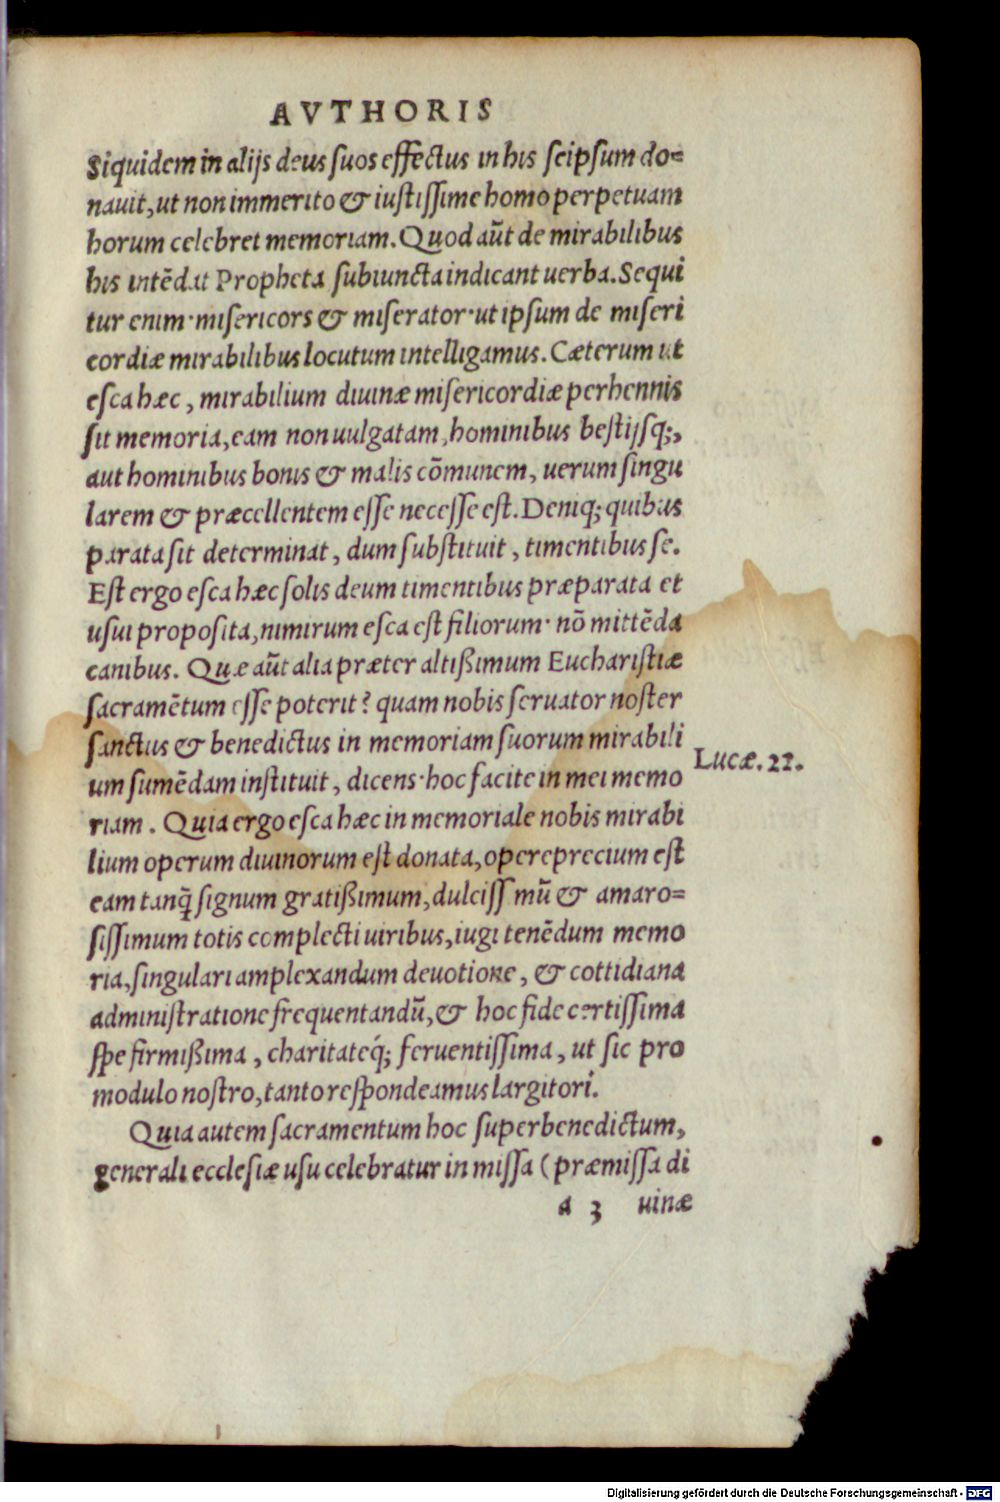 AVTHORIS
Siquidem in alijs deus suos effectus in his seipsum do=
nauit, ut non immerito & iustissime homo perpetuam
horum celebret memoriam. Quod aũt de mirabilibus
his intẽdat Propheta subiuncta indicant uerba. Sequi
tur enim· misericors & miserator· ut ipsum de miseri
cordiæ mirabilibus locutum intelligamus. Cæterum ut
esca hæc, mirabilium diuinæ misericordiæ perhennis
sit memoria, eam non uulgatam, hominibus bestijsq;,
aut hominibus bonis & malis cõmunem, uerum singu
larem & præcellentem esse necesse est. Deniq; quibus
parata sit determinat, dum substituit, timentibus se.
Est ergo esca hæc solis deum timentibus præparata et
usui proposita, nimirum esca est filiorum· nõ mittẽda
canibus. Quæ aũt alia præter altißimum Eucharistiæ
sacramẽtum esse poterit? quam nobis seruator noster
sanctus & benedictus in memoriam suorum mirabili
um sumẽdam instituit, dicens· hoc facite in mei memo
riam. Quia ergo esca hæc in memoriale nobis mirabi
lium operum diuinorum est donata, opereprecium est
eam tanq̃ signum gratißimum, dulciss mũ & amaro=
sissimum totis complecti uiribus, iugi tenẽdum memo
ria, singulari amplexandum deuotione, & cottidiana
administratione frequentandũ, & hoc fide certissima
spe firmißima, charitateq́; feruentissima, ut sic pro
modulo nostro, tanto respondeamus largitori.
Quia autem sacramentum hoc superbenedictum,
generali ecclesiæ usu celebratur in missa (præmissa di
a 3 uinæ
Lucæ. 22.
Digitalisierung gefördert durch die Deutsche Forschungsgemeinschaft - DFG